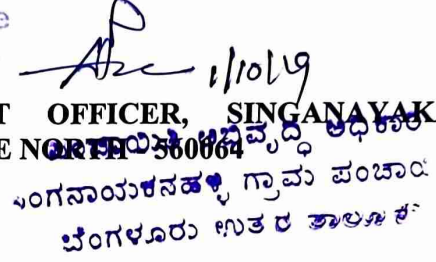 1/10/19
T OFFICER, SINGANAYAK
E NORTH - 560064
ಪಂಚಾಯಿತಿ ಅಭಿವೃದ್ಧಿ ಅಧಿಕಾರಿ
ಂಗನಾಯಕನಹಳ್ಳಿ ಗ್ರಾಮ ಪಂಚಾಯ
ಬೆಂಗಳೂರು ಉತ್ತರ ತಾಲ್ಲೂಕು